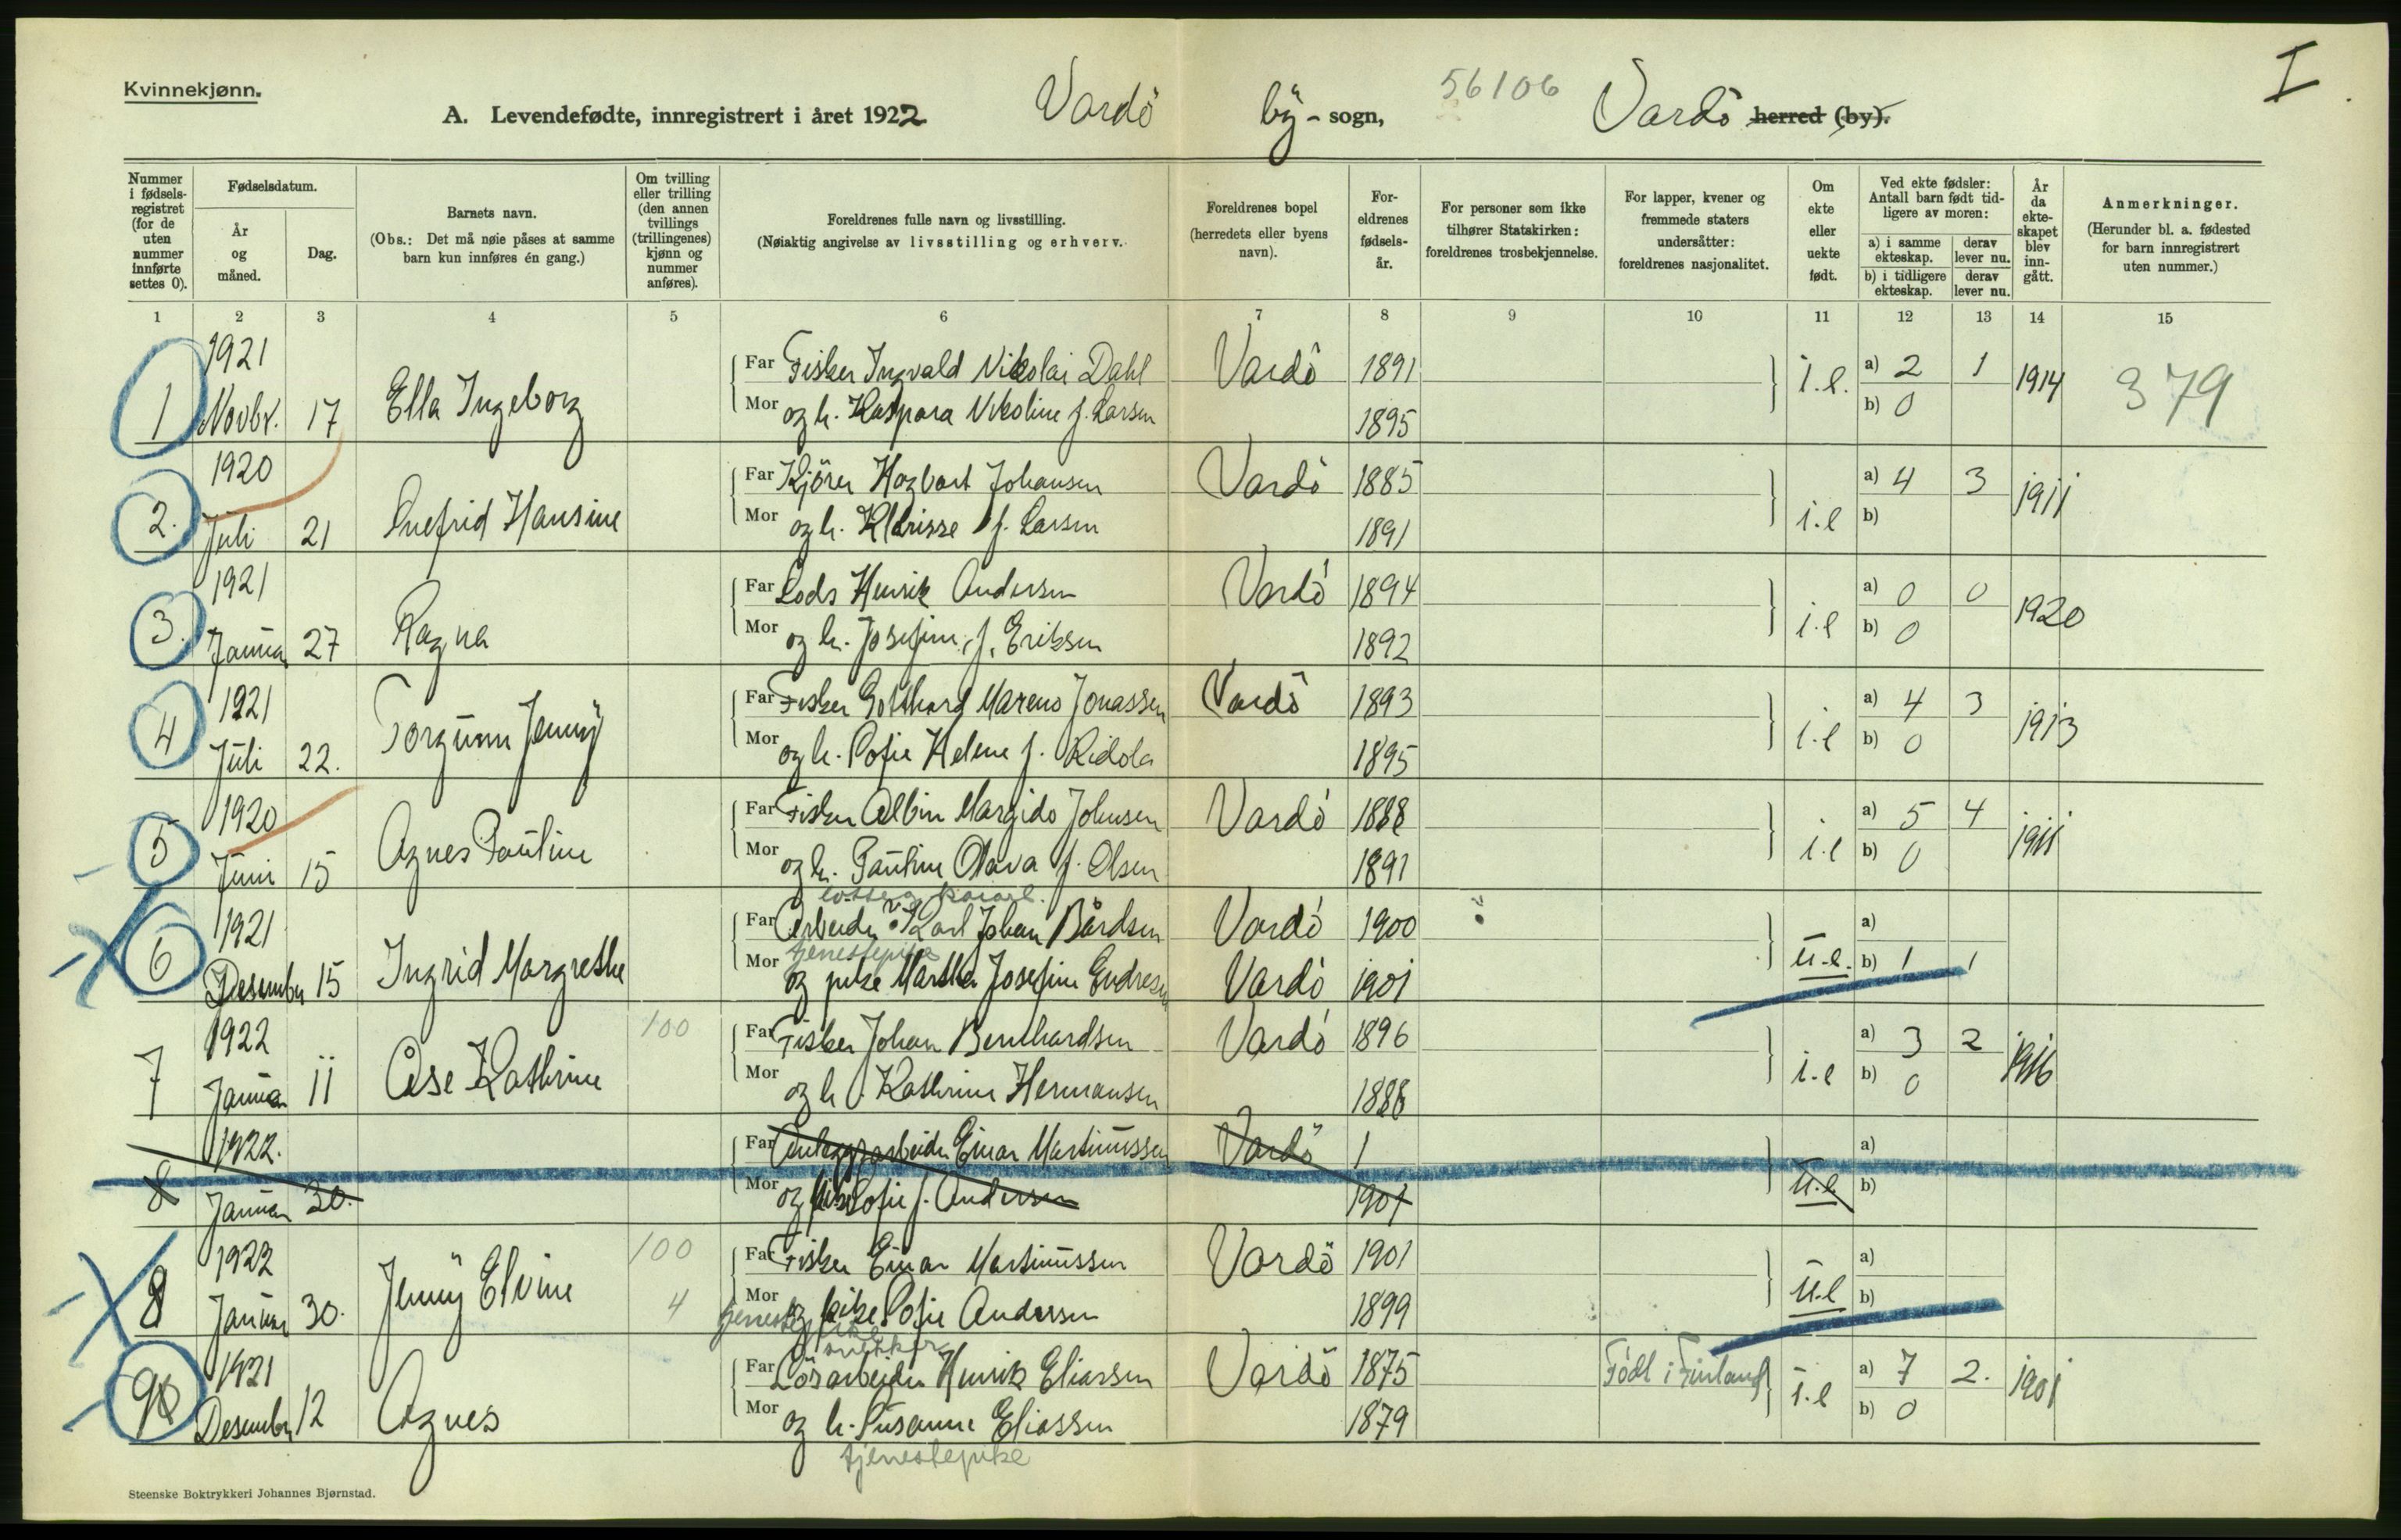 Kvinnekjønn.
I
A. Levendefødte, innregistrert i året 1922
Vardö by - sogn,
56106
Vardö herred (by).
Nummer i fødsels-registret (for de uten nummer innførte settes 0).
Fødselsdatum.
År og måned.
Dag.
Barnets navn.
(Obs.: Det må nøie påses at samme barn kun innføres én gang.)
Om tvilling eller trilling (den annen tvillings (trillingenes) kjønn og nummer anføres).
Foreldrenes fulle navn og livsstilling.
(Nøiaktig angivelse av livsstilling og erhverv.
Foreldrenes bopel (herredets eller byens navn).
For-eldrenes fødsels-år.
For personer som ikke tilhører Statskirken: foreldrenes trosbekjennelse.
For lapper, kvener og fremmede staters undersåtter: foreldrenes nasjonalitet.
Om ekte eller uekte født.
Ved ekte fødsler: Antall barn født tid-ligere av moren:
a) i samme ekteskap.
derav lever nu.
b) i tidligere ekteskap.
derav lever nu.
År da ekte-skapet blev inn-gått.
Anmerkninger.
(Herunder bl. a. fødested for barn innregistrert uten nummer.)
1 2 3 4 5 6 7 8 9 10 11 12 13 14 15
1 1921 Novbr. 17 Ella Ingeborg
Far Fisker Ingvald Nikolai Dahl Vardö 1891 i.e. a) 2 1 1914 379
Mor og h. Kaspara Nikoline f. Larsen 1895 b) 0
2. 1920 Juli 21 Snefrid Hansine
Far Kjörer Hagbart Johansen Vardö 1885 i.e a) 4 3 1911
Mor og h. Klarisse f. Larsen 1891 b)
3. 1921 Januar 27 Ragna
Far Lods Henrik Andersen Vardö 1894 i.e a) 0 0 1920
Mor og h. Josefine f. Eriksen 1892 b) 0
4 1921 Juli 22. Torgunn Jenny
Far Fisker Gotthard Marenus Jonassen Vardö 1893 i.e a) 4 3 1913
Mor og h. Sofie Helene f. Ridola 1895 b) 0
5 1920 Juni 15 Agnes Pauline
Far Fisker Albin Margido Johnsen Vardö 1888 i.e a) 5 4 1911
Mor og h. Pauline Olava f. Olsen 1891 b) 0
6 1921 Desember 15 Ingrid Margrethe
Far Arbeider Karl Johan Bårdsen Vardö 1900 u.e. a)
tjenestepike
Mor og pike Martha Josefine Endresen Vardö 1901 b) 1 1
7 1922 Januar 11 Åse Kathrine 100
Far Fisker Johan Bernhardsen Vardö 1896 i.e a) 3 2 1916
Mor og h. Kathrine Hermansen 1888 b) 0
8 1922. Januar 30.
Far Anleggsarbeider Einar Martinussen Vardö 1 u.e a)
Mor og pike Sofie f. Andersen 1901 b)
8 1922 Januar 30. Jenny Elvine 100 4
Far Fisker Einar Martinussen Vardö 1901 u.e a)
Mor og pike Sofie Andersen 1899 b)
tjenestepike
snekker
9 1921 Desember 12 Agnes
Far Lösarbeider Henrik Eliassen Vardö 1875 Födt i Finland i.e a) 7 2. 1901
Mor og h. Susanne Eliassen 1879 b) 0
tjenestepike
Steenske Boktrykkeri Johannes Bjørnstad.